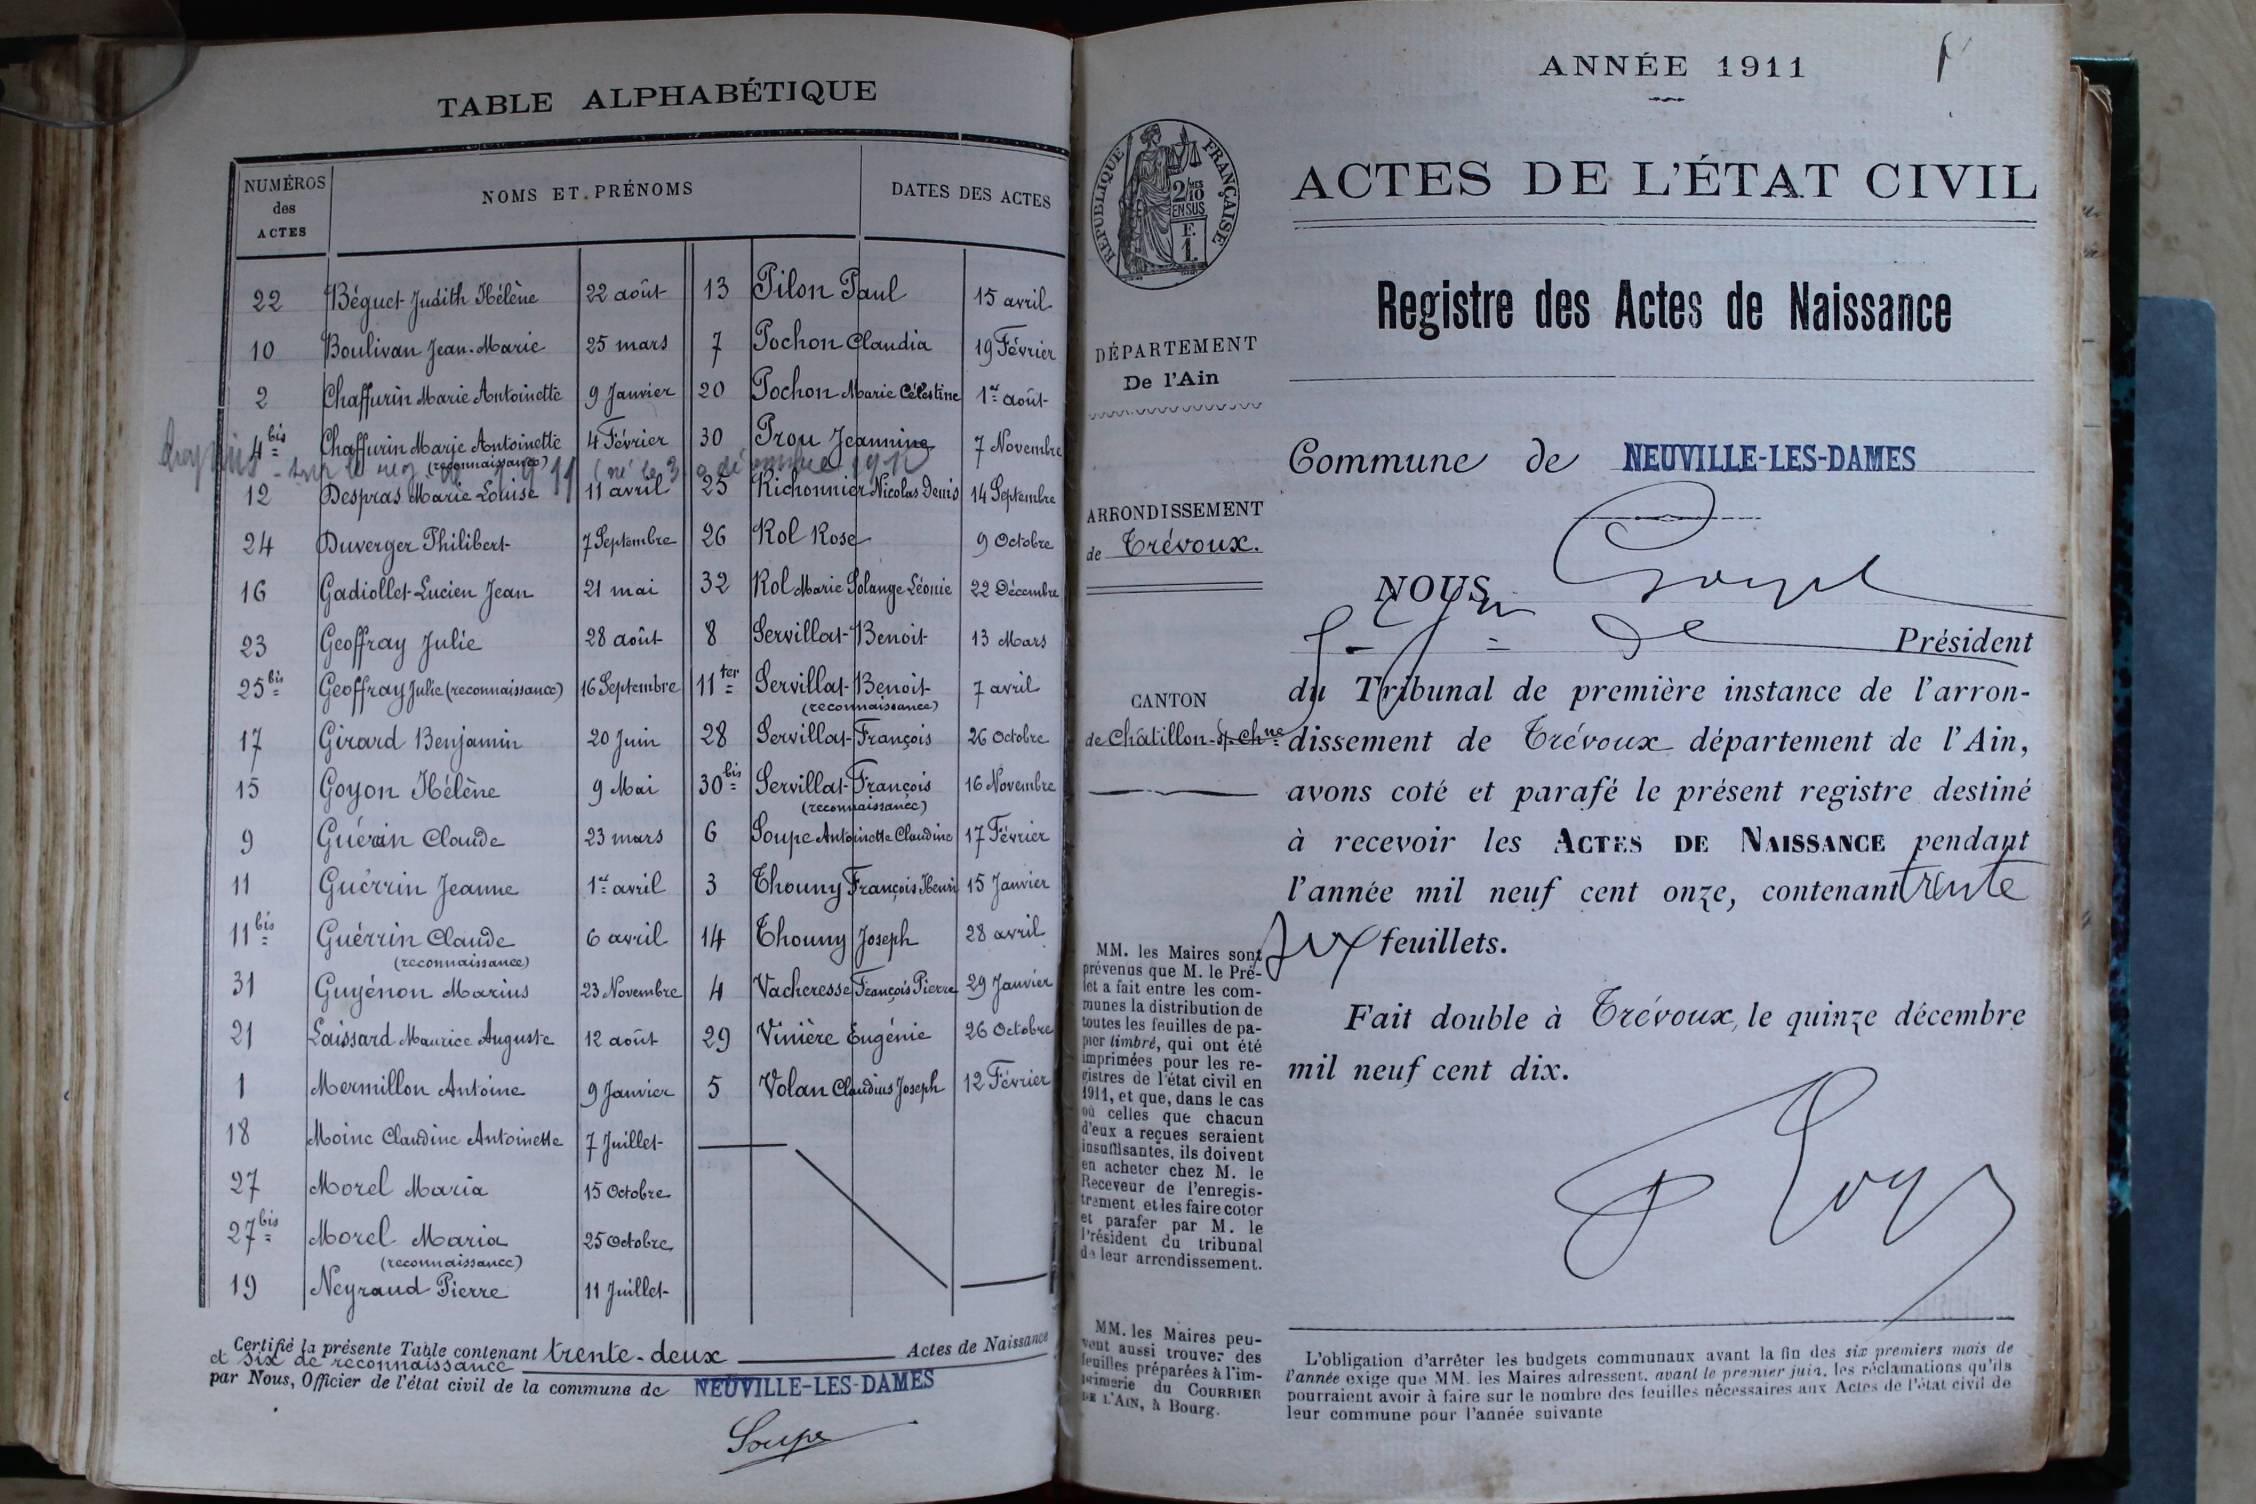 TABLE ALPHABÉTIQUE
NUMÉROS des ACTES NOMS ET PRÉNOMS DATES DES ACTES
22 Béguet Judith Hélène 22 août
10 Boulivan Jean-Marie 25 mars
2 Chaffurin Marie Antoinette 9 Janvier
4 bis Chaffurin Marie Antoinette 4 Février
(reconnaissance)
12 Despras Marie Louise 11 avril
24 Duverger Philibert 7 Septembre
16 Gadiollet Lucien Jean 21 mai
23 Geoffray Julie 28 août
25 bis Geoffray Julie (reconnaissance) 16 Septembre
17 Girard Benjamin 20 Juin
15 Goyon Hélène 9 Mai
9 Guérin Claude 23 mars
11 Guérrin Jeanne 1er avril
11 bis Guérrin Claude 6 avril
(reconnaissance)
31 Guyénon Marius 23 Novembre
21 Laissard Maurice Auguste 12 août
1 Mermillon Antoine 9 Janvier
18 Moine Claudine Antoinette 7 Juillet
27 Morel Maria 15 Octobre
27 bis Morel Maria 25 Octobre
(reconnaissance)
19 Neyraud Pierre 11 Juillet
13 Pilon Paul 15 avril
7 Pochon Claudia 19 Février
20 Pochon Marie Célestine 1er août
30 Prou Jeannine 7 Novembre
25 Richonnier Nicolas Denis 14 Septembre
26 Rol Rose 9 Octobre
32 Rol Marie Solange Léonie 22 Décembre
8 Servillat Benoit 13 Mars
11 ter Servillat Benoit 7 avril
(reconnaissance)
28 Servillat François 26 Octobre
30 bis Servillat François 16 Novembre
(reconnaissance)
6 Soupe Antoinette Claudine 17 Février
3 Thouny François Henri 15 Janvier
14 Thouny Joseph 28 avril
4 Vacheresse François Pierre 29 Janvier
29 Vinière Eugénie 26 Octobre
5 Volan Claudius Joseph 12 Février
Certifié la présente Table contenant trente-deux Actes de Naissance
et six de reconnaissance
par Nous, Officier de l'état civil de la commune de NEUVILLE-LES-DAMES
Soupe
ANNÉE 1911
RÉPUBLIQUE FRANÇAISE
2/10 mes
EN SUS
F.
1.
ACTES DE L'ÉTAT CIVIL
Registre des Actes de Naissance
DÉPARTEMENT
De l'Ain
ARRONDISSEMENT
de Trévoux.
CANTON
de Châtillon-s/-Chne
MM. les Maires sont
prévenus que M. le Pré-
fet a fait entre les com-
munes la distribution de
toutes les feuilles de pa-
pier timbré, qui ont été
imprimées pour les re-
gistres de l'état civil en
1911, et que, dans le cas
où celles que chacun
d'eux a reçues seraient
insuffisantes, ils doivent
en acheter chez M. le
Receveur de l'enregis-
trement et les faire coter
et parafer par M. le
Président du tribunal
de leur arrondissement.
MM. les Maires peu-
vent aussi trouver des
feuilles préparées à l'im-
primerie du COURRIER
DE L'AIN, à Bourg.
Commune de NEUVILLE-LES-DAMES
NOUS
Président
du Tribunal de première instance de l'arron-
dissement de Trévoux département de l'Ain,
avons coté et parafé le présent registre destiné
à recevoir les ACTES DE NAISSANCE pendant
l'année mil neuf cent onze, contenant trente
feuillets.
Fait double à Trévoux, le quinze décembre
mil neuf cent dix.
L'obligation d'arrêter les budgets communaux avant la fin des six premiers mois de
l'année exige que MM. les Maires adressent, avant le premier juin, les réclamations qu'ils
pourraient avoir à faire sur le nombre des feuilles nécessaires aux Actes de l'état civil de
leur commune pour l'année suivante